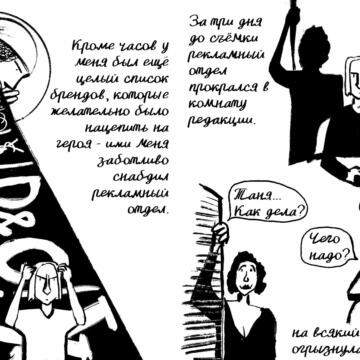 Кроме часов у
меня был ещё
целый список
брендов, которые
желательно было
нацепить на
героя - ими меня
заботливо
снабдил
рекламный
отдел.
За три дня
до съёмки
рекламный
отдел
прокрался в
комнату
редакции.
Таня...
Как дела?
Чего
надо?
на всякий
огрызнула
D&G